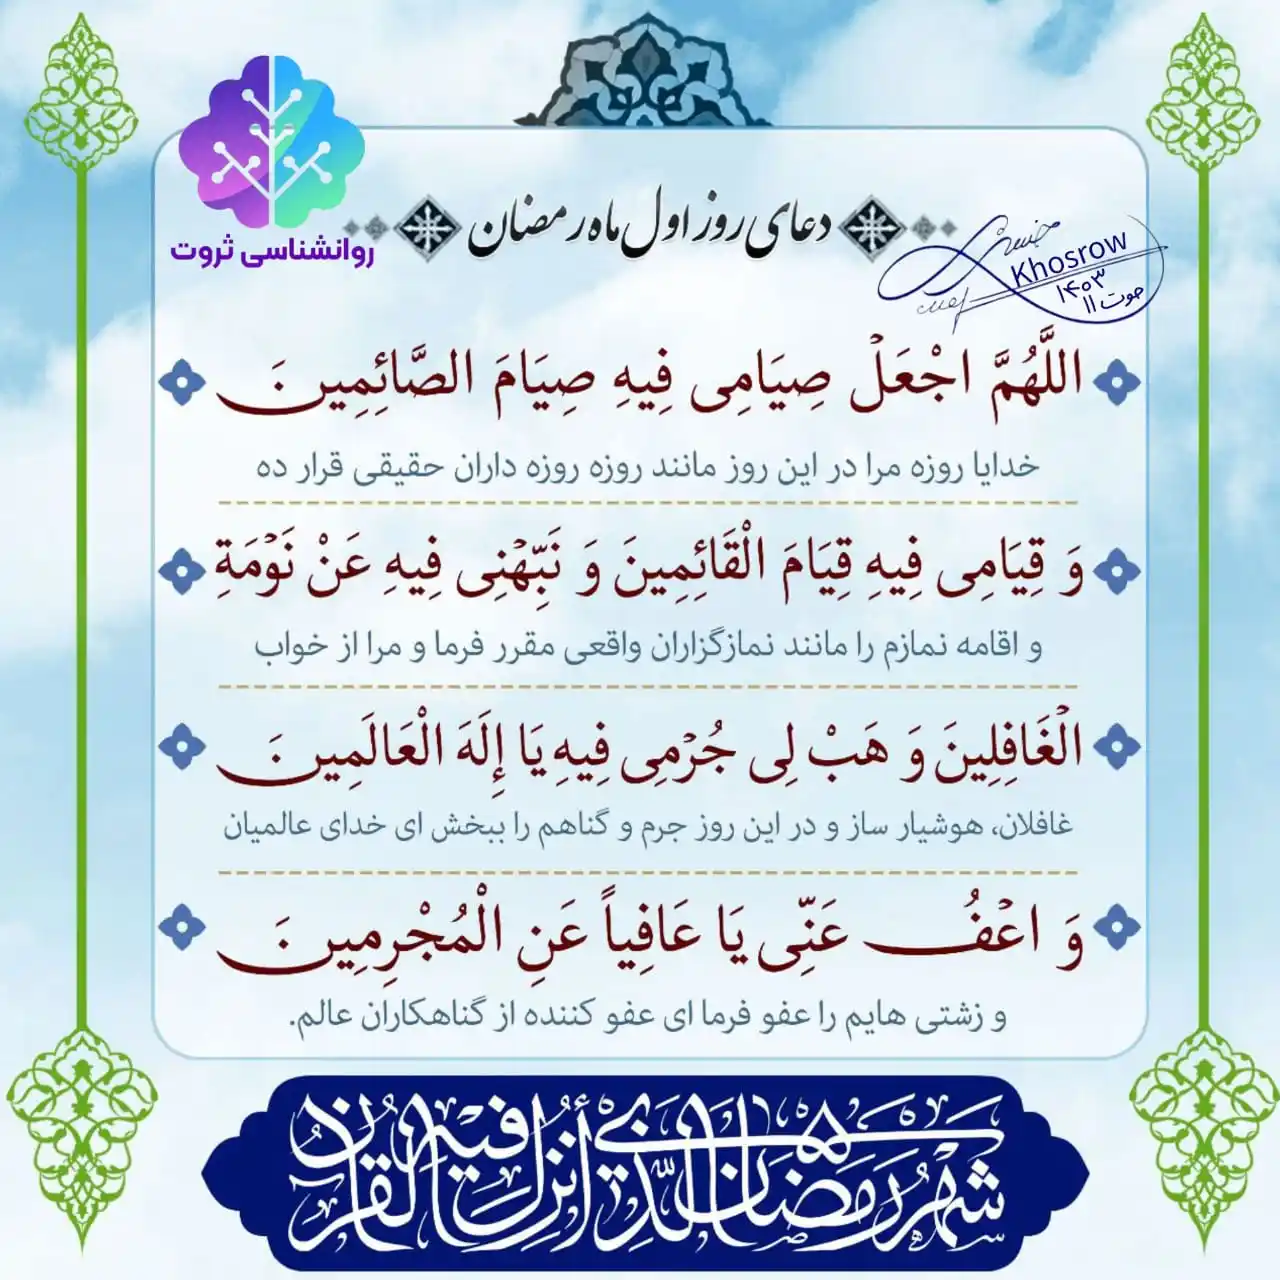 روانشناسی ثروت
دعای روز اول ماه رمضان
Khosrow
حوت ۱۱
۱۴۰۳
اللَّهُمَّ اجْعَلْ صِيَامِی فِيهِ صِيَامَ الصَّائِمِينَ
خدایا روزه مرا در این روز مانند روزه روزه داران حقیقی قرار ده
وَ قِيَامِی فِيهِ قِيَامَ الْقَائِمِينَ وَ نَبِّهْنِی فِيهِ عَنْ نَوْمَةِ
و اقامه نمازم را مانند نمازگزاران واقعی مقرر فرما و مرا از خواب
الْغَافِلِينَ وَ هَبْ لِی جُرْمِی فِيهِ يَا إِلَهَ الْعَالَمِينَ
غافلان، هوشیار ساز و در این روز جرم و گناهم را ببخش ای خدای عالمیان
وَ اعْفُ عَنِّی يَا عَافِياً عَنِ الْمُجْرِمِينَ
و زشتی هایم را عفو فرما ای عفو کننده از گناهکاران عالم.
شَهْرُ رَمَضَانَ الَّذِي أُنْزِلَ فِيهِ الْقُرْآنُ